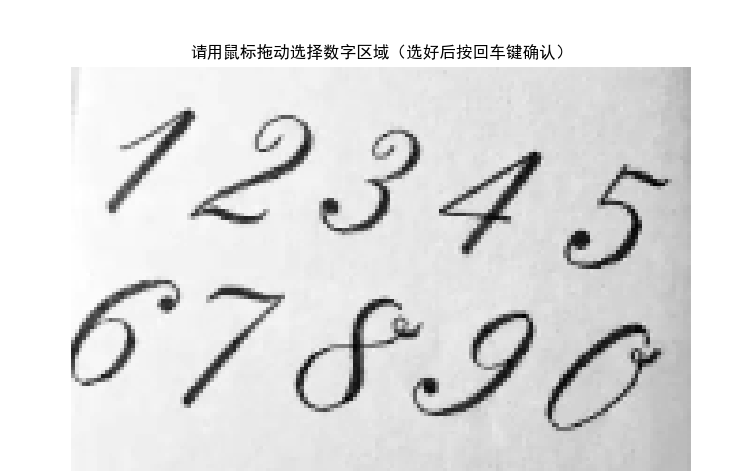 请用鼠标拖动选择数字区域（选好后按回车键确认）
1 2 3 4 5
6 7 8 9 0